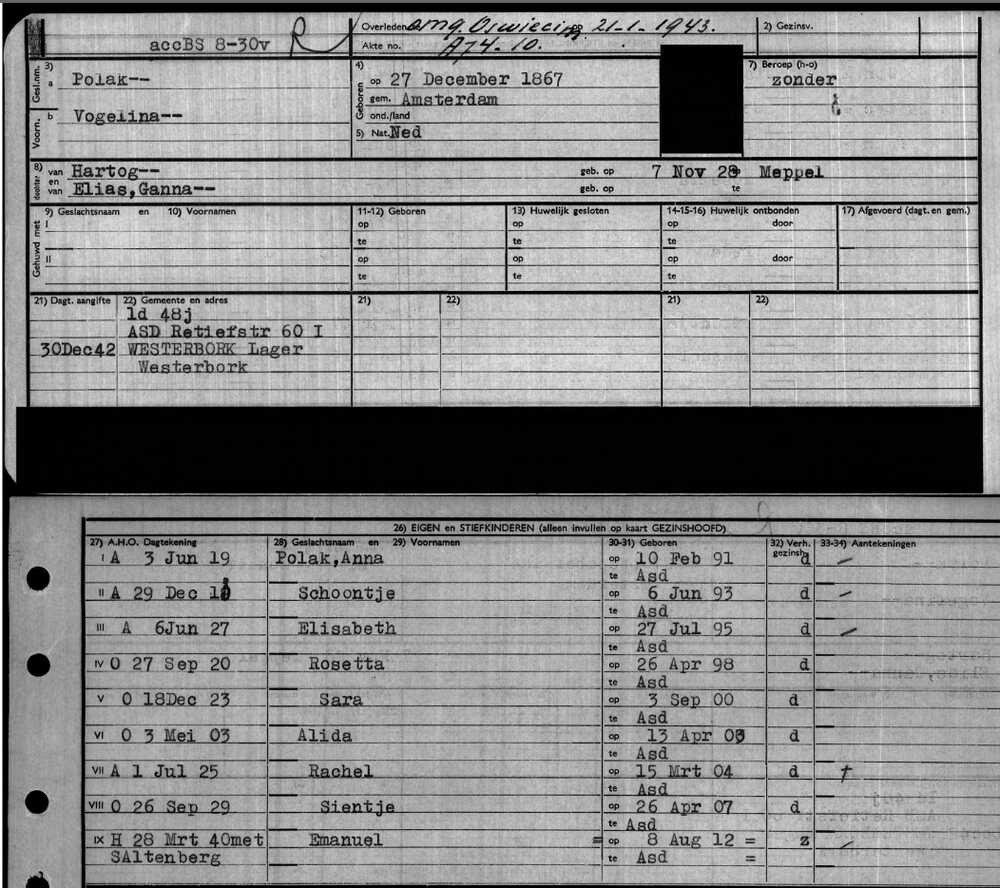 accBS 8-30v R
Overleden omg. Oswiecim op 21-1-1943.
Akte no. A74-10.
2) Gezinsv.
3) Gesl.nm. a Polak--
Voorn. b Vogelina--
4) Geboren op 27 December 1867
gem. Amsterdam
ond./land
5) Nat. Ned
7) Beroep (h-o)
zonder
8) dochter van Hartog-- geb. op 7 Nov 28 Meppel
en van Elias,Ganna-- geb. op te
9) Geslachtsnaam en 10) Voornamen 11-12) Geboren 13) Huwelijk gesloten 14-15-16) Huwelijk ontbonden 17) Afgevoerd (dagt. en gem.)
Gehuwd met I op op op door
te te te
II op op op door
te te te
21) Dagt. aangifte 22) Gemeente en adres 21) 22) 21) 22)
ld 48j
ASD Retiefstr 60 I
30Dec42 WESTERBORK Lager
Westerbork
26) EIGEN en STIEFKINDEREN (alleen invullen op kaart GEZINSHOOFD)
27) A.H.O. Dagtekening 28) Geslachtsnaam en 29) Voornamen 30-31) Geboren 32) Verh. gezinsh. 33-34) Aantekeningen
I A 3 Jun 19 Polak,Anna op 10 Feb 91 d
te Asd
II A 29 Dec Schoontje op 6 Jun 93 d
te Asd
III A 6Jun 27 Elisabeth op 27 Jul 95 d
te Asd
IV O 27 Sep 20 Rosetta op 26 Apr 98 d
te Asd
V O 18Dec 23 Sara op 3 Sep 00 d
te Asd
VI O 3 Mei 03 Alida op 13 Apr d
te Asd
VII A 1 Jul 25 Rachel op 15 Mrt 04 d †
te Asd
VIII O 26 Sep 29 Sientje op 26 Apr 07 d
te Asd
IX H 28 Mrt 40met Emanuel = op 8 Aug 12 = z
SAltenberg te Asd =